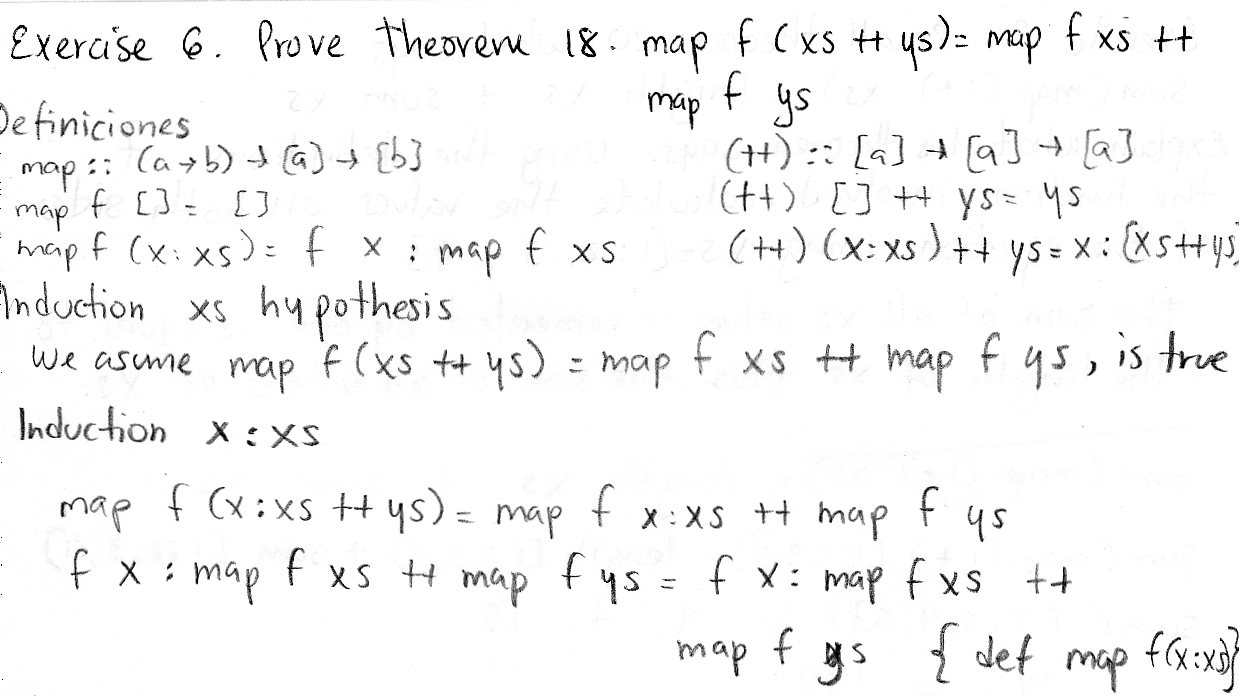 Exercise 6. Prove Theorem 18. map f (xs ++ ys)= map f xs ++
map f ys
Definiciones
map :: (a→b) → [a] → [b]
(++) :: [a] → [a] → [a]
map f [] = []
(++) [] ++ ys = ys
map f (x:xs) = f x : map f xs
(++) (x:xs) ++ ys = x : (xs ++ ys)
Induction xs hypothesis
We asume map f (xs ++ ys) = map f xs ++ map f ys, is true
Induction x : xs
map f (x:xs ++ ys) = map f x:xs ++ map f ys
f x : map f xs ++ map f ys = f x : map f xs ++
map f ys { def map f(x:xs)}